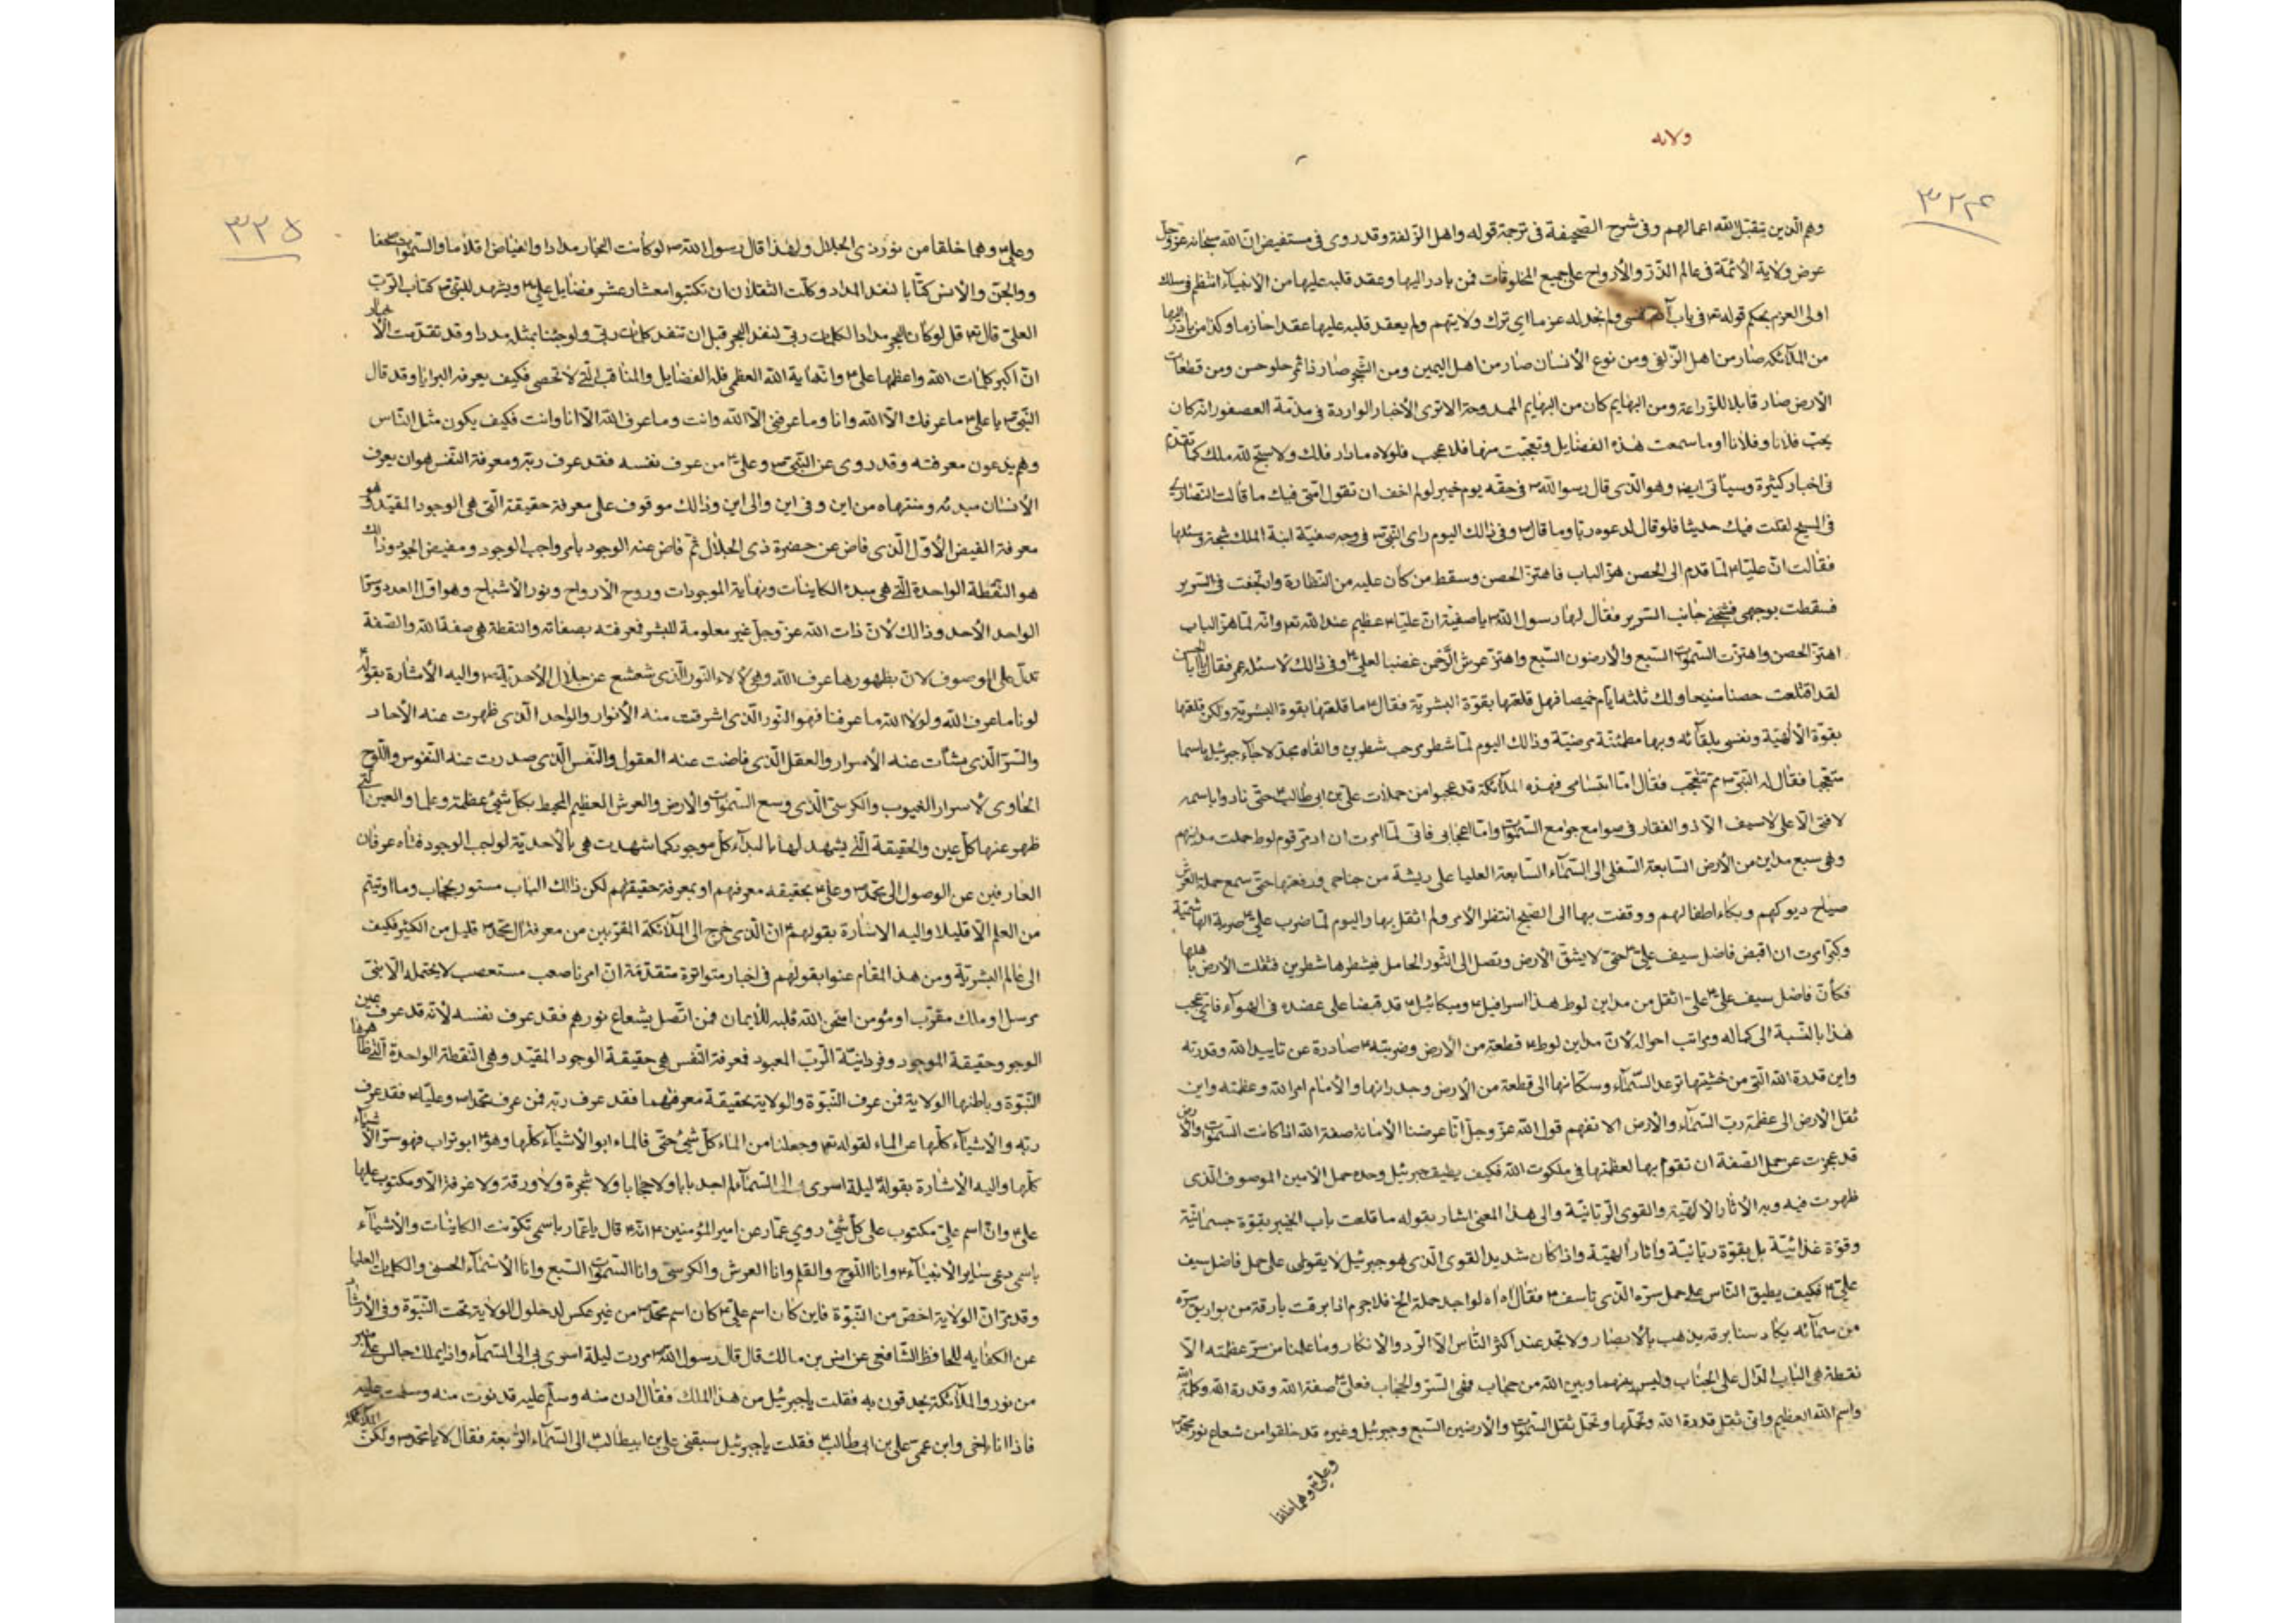 ولايه
٣٢٤
وهم الذين يتقبل الله اعمالهم وفي شرح الصحيفة في ترجمة قوله واهل الزلفة وقد روى في مستفيض ان الله سبحانه عز وجل
عرض ولاية الأئمة في عالم الذر والأرواح على جميع المخلوقات فمن بادر اليها وعقد قلبه عليها من الانبيآء انتظم في سلك
اولى العزم بحكم قوله تع في باب آدم فنسى ولم نجد له عزما اى ترك ولايتهم ولم يعقد قلبه عليها عقدا جازما وكذا من بادر اليها
من الملآئكه صار من اهل الزلفى ومن نوع الأنسان صار من اهل اليمين ومن الشجر صار ذا ثمر حلو حسن ومن قطعات
الأرض صار قابلا للزراعة ومن البهايم كان من البهايم الممدوحة الا ترى الأخبار الواردة في مذمة العصفور انه كان
يحب فلانا وفلانا او ما سمعت هذه الفضايل وتعجبت منها فلا عجب فلولاه ما دار فلك ولا سبح لله ملك كما تقدم
في اخبار كثيرة وسياتى ايضا وهو الذى قال رسول الله ص في حقه يوم خيبر لو لم اخف ان تقول امتى فيك ما قالت النصارى
في المسيح لقلت فيك حديثا فلو قال لدعوه ربا وما قال وفي ذالك اليوم راى النبى ص في وجه صفية ابنة الملك شجة وسئلها
فقالت ان عليا ع لما قدم الى الحصن هز الباب فاهتز الحصن وسقط من كان عليه من النظارة وارتجفت في السرير
فسقطت بوجهى فشجنى جانب السرير فقال لها رسول الله ص يا صفية ان عليا ع عظيم عند الله تع وانه لما هز الباب
اهتز الحصن واهتزت السموات السبع والأرضون السبع واهتز عرش الرحمن غضبا لعلى ع وفي ذالك لا سئله عمر فقال يا ابا الحسن
لقد اقتلعت حصنا منيعا ولك ثلثه ايام خميصا فهل قلعتها بقوة البشرية فقال ع ما قلعتها بقوة البشرية ولكن قلعتها
بقوة الألهية ونفس بلقآئه ربها مطمئنة مرضية وذالك اليوم لما شطر مرحب شطرين والقاه مجدلا جآء جبرئيل باسما
متعجبا فقال له النبى ص مم تتعجب فقال اما ابتسامى فهذه الملآئكة قد عجبوا من حملات على بن ابى طالب ع حتى نادوا باسمه
لا فتى الا على لا سيف الا ذو الفقار في صوامع جوامع السموات واما اعجابى فانى لما امرت ان ادمر قوم لوط حملت مداينهم
وهى سبع مداين من الأرض السابعة السفلى الى السمآء السابعة العليا على ريشة من جناحى ورفعتها حتى سمع حملة العرش
صياح ديوكهم وبكاء اطفالهم ووقفت بها الى الصبح انتظر الامر ولم اثقل بها واليوم لما ضرب على ع ضربة الهاشمية
وكبر امرت ان اقبض فاضل سيف على ع حتى لا يشق الأرض وتصل الى الثور الحامل فيشطرها شطرين فتقلب الأرض باهلها
فكان فاضل سيف على ع على اثقل من مداين لوط هذا اسرافيل ع وميكائيل ع قد قبضا على عضده في الهوآء فان تعجب
هذا بالنسبة الى كماله ومراتب احواله لان مداين لوط ع قطعة من الأرض وضربته ع صادرة عن تاييد الله وقدرته
واين قدرة الله التى من خشيتها ترعد السمآء وسكانها الى قطعة من الأرض وجدرانها والأمام امر الله وعظمته واين
ثقل الأرض الى عظمة رب السمآء والأرض الا تفهم قول الله عز وجل انا عرضنا الأمانة صفة الله اذا كانت السموات والأرض
قد عجزت عن حمل الصفة ان تقوم بها لعظمتها في ملكوت الله فكيف يطيق جبرئيل وحده حمل الأمين الموصوف الذى
ظهرت فيه وبه الآثار الالهية والقوى الربانية والى هذا المعنى اشار بقوله ما قلعت باب الخيبر بقوة جسمانية
وقوة غذائية بل بقوة ربانية وآثار الهية واذا كان شديد القوى الذى هو جبرئيل لا يقوى على حمل فاضل سيف
على ع فكيف يطيق الناس على حمل سره الذى تاسف ع فقال اه اه لو اجد حملة الخ فلا جرم اذا برقت بارقة من بوارق سره
من سمآئه يكاد سنا برقه يذهب بالأبصار ولا تجد عند اكثر الناس الا الرد والانكار وما علمنا من سر عظمته الا
نقطة هى الباب الدال على الجناب وليس بينهما وبين الله من حجاب ففى الستر والحجاب فعلى ع صفة الله وقدرة الله وكلمة الله
واسم الله العظيم وانى ثقل قدرة الله وتحملها وتحمل ثقل السموات والارضين السبع وجبرئيل وغيره قد خلقوا من شعاع نور محمد ص
وعلى ع وهما خلقا
٣٢٥
وعلى ع وهما خلقا من نور ذى الجلال ولهذا قال رسول الله ص لو كانت البحار مدادا والغياض اقلاما والسموات صحفا
ووالجن والأنس كتابا لنفد المداد وكلت الثقلان ان تكتبوا معشار عشر فضايل على ع ويشهد للنبى ص كتاب الرب
العلى قال تع قل لو كان البحر مدادا لكلمات ربى لنفد البحر قبل ان تنفد كلمات ربى ولو جئنا بمثله مددا وقد تقدمت الأخبار
ان اكبر كلمات الله واعظمها على ع وانه اية الله العظمى فله الفضايل والمناقب التى لا تحصى فكيف يعرفه البرايا وقد قال
النبى ص يا على ع ما عرفك الا الله وانا وما عرفنى الا الله وانت وما عرف الله الا انا وانت فكيف يكون مثل الناس
وهم يدعون معرفته وقد روى عن النبى ص وعلى ع من عرف نفسه فقد عرف ربه ومعرفة النفس هو ان يعرف
الأنسان مبدئه ومنتهاه من اين وفي اين والى اين وذالك موقوف على معرفة حقيقة التى هى الوجود المقيد وهو
معرفة الفيض الأول الذى فاض عن حضرة ذى الجلال ثم فاض عنه الوجود بامر واجب الوجود ومفيض الجود وذالك
هو النقطة الواحدة التى هى مبدء الكاينات ونهاية الموجودات وروح الأرواح ونور الأشباح وهو اول العدد وسر
الواحد الأحد وذالك لأن ذات الله عز وجل غير معلومة للبشر فمعرفته بصفاته والنقطة هى صفة الله والصفة
تدل على الموصوف لان بظهورها عرف الله وهى لألاء النور الذى شعشع عن جلال الأحدية واليه الأشارة بقوله ع
لو نا ما عرف الله ولولا الله ما عرفنا فهو النور الذى اشرقت منه الأنوار والواحد الذى ظهرت عنه الأحاد
والسر الذى نشأت عنه الأسرار والعقل الذى فاضت عنه العقول والنفس الذى صدرت عنه النفوس واللوح
الحاوى لأسرار الغيوب والكرسى الذى وسع السموات والأرض والعرش العظيم المحيط بكل شئ عظمة وعلما والعين التى
ظهر عنها كل عين والحقيقة التى يشهد لها بالبدآء كل موجود كما شهدت هى بالأحدية لواجب الوجود فتاه عرفان
العارفين عن الوصول الى محمد ص وعلى ع بحقيقه معرفتهم او بمعرفة حقيقتهم لكن ذالك الباب مستور بحجاب وما اوتيتم
من العلم الا قليلا واليه الاشارة بقولهم ع ان الذى خرج الى الملآئكة المقربين من معرفة آل محمد ص قليل من الكثير فكيف
الى عالم البشرية ومن هذا المقام عنوا بقولهم في اخبار متواترة متقدمة ان امرنا صعب مستصعب لا يحتمله الا نبى
مرسل او ملك مقرب او مؤمن امتحن الله قلبه للأيمان فمن اتصل بشعاع نورهم فقد عرف نفسه لأنه قد عرف عين
الوجود وحقيقة الموجود وفردانية الرب المعبود فمعرفة النفس هى حقيقة الوجود المقيد وهى النقطة الواحدة التى ظاهرها
النبوة وباطنها الولاية فمن عرف النبوة والولاية بحقيقة معرفتهما فقد عرف ربه فمن عرف محمدا ص وعليا ع فقد عرف
ربه والاشيآء كلها عن الماء لقوله تع وجعلنا من الماء كل شئ حى فالماء ابو الأشيآء كلها وهو ع ابو تراب فهو سر الأشيآء
كلها واليه الأشارة بقوله ليلة اسرى بى الى السمآء لم اجد بابا ولا حجابا ولا شجرة ولا ورقة ولا غرفة الا ومكتوب عليها
على ع وان اسم على مكتوب على كل شئ روى عمار عن امير المؤمنين ع انه قال يا عمار باسمى تكونت الكاينات والأشيآء
باسمى دعى ساير الانبيآء ع وانا اللوح والقلم وانا العرش والكرسى وانا السموات السبع وانا الأسمآء الحسنى والكلمات العليا
وقد مر ان الولاية اخص من النبوة فاين كان اسم على ع كان اسم محمد ص من غير عكس لدخول الولاية تحت النبوة وفي الأرشاد
عن الكفايه للحافظ الشافعى عن انس بن مالك قال قال رسول الله ص مررت ليلة اسرى بى الى السمآء واذا بملك جالس على منبر
من نور والملآئكة يحدقون به فقلت يا جبرئيل من هذا الملك فقال ادن منه وسلم عليه فدنوت منه وسلمت عليه
فاذا انا باخى وابن عمى على بن ابى طالب ع فقلت يا جبرئيل سبقنى على بن ابيطالب ع الى السمآء الرابعة فقال لا يا محمد ص ولكن الملآئكة